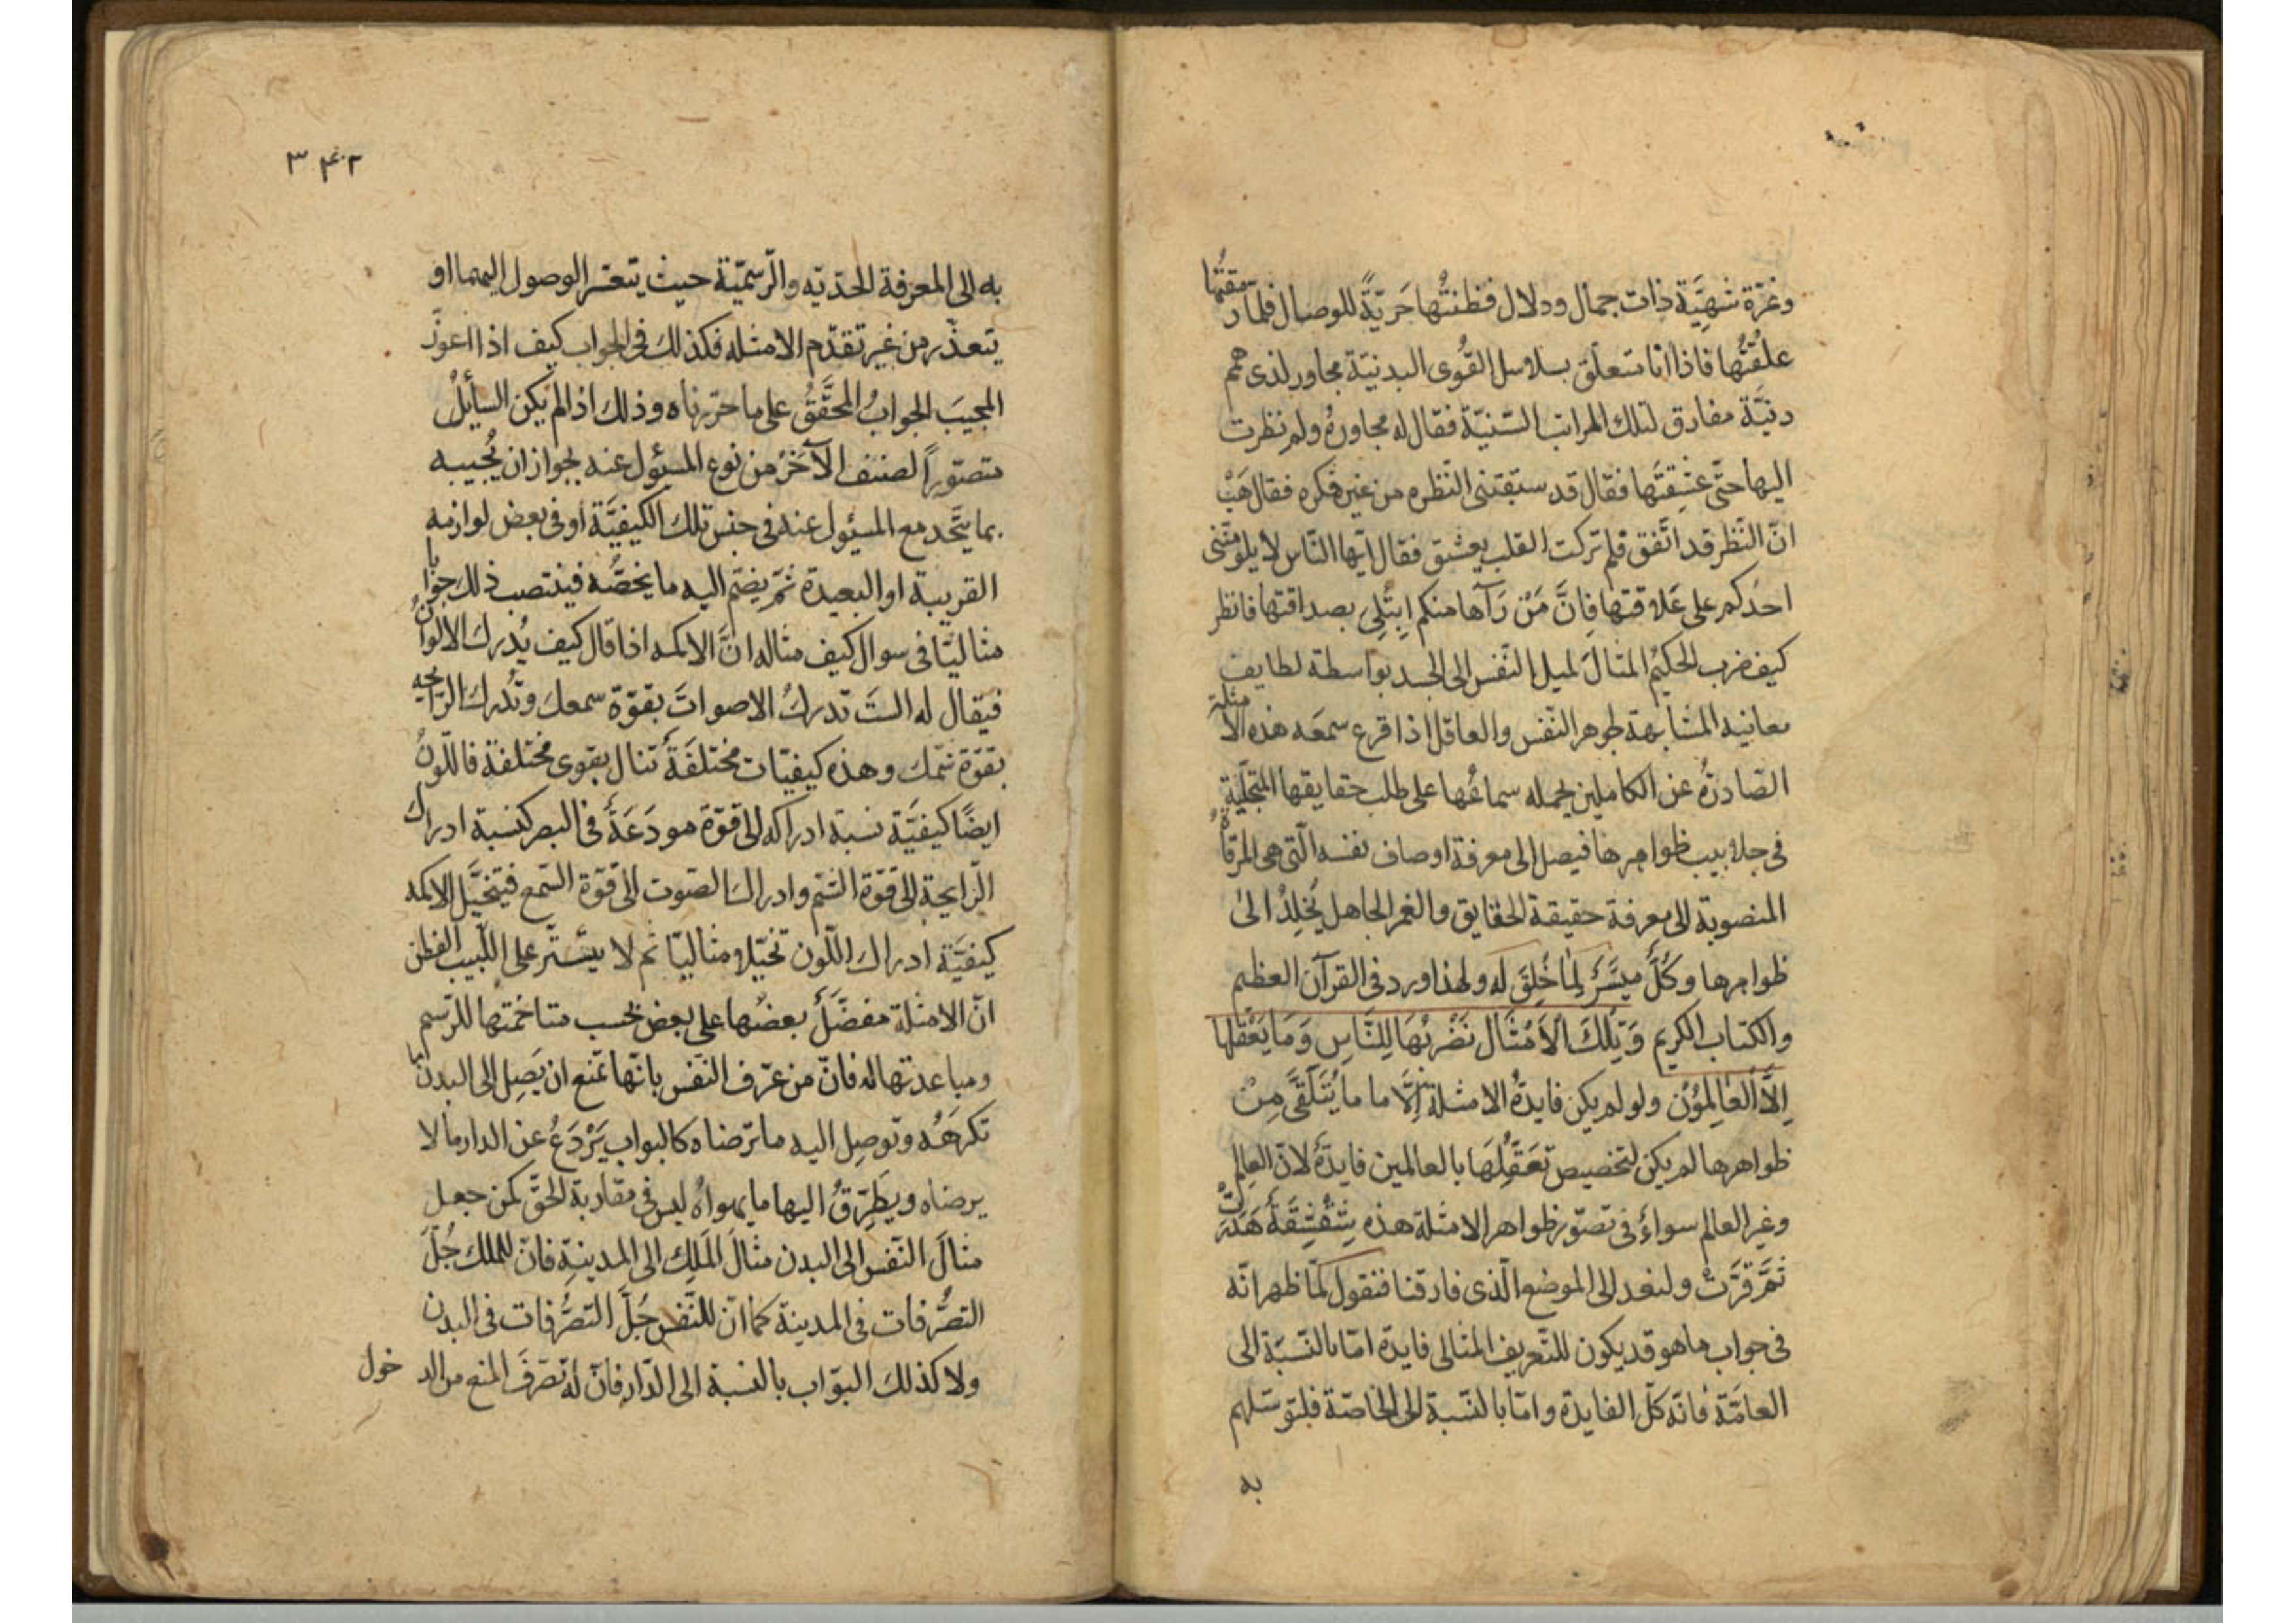 وغرّة شهيّة ذات جمال ودلال فظننتُها حَريّةً للوصال فلمّا رمقتُها
علقتُها فاذا انا متعلّق بسلاسل القُوى البدنيّة مجاور لذى همم
دنيّة مفارق لتلك المراتب السّنيّة فقال له مجاورهُ ولم نظرت
اليها حتّى عشِقتَها فقال قد سبقتنى النّظره من غير فكره فقال هَبْ
انّ النّظر قد اتّفق فلم تركت القلب يعشق فقال ايّها النّاس لا يلومنّنى
احدُكم على عَلاقتها فاِنَّ مَنْ رَآها منكم اِبتُلِى بصداقتها فانظر
كيف ضرب الحكيمُ المثالَ لميل النّفس الى الجسد بواسطة لطايف
معانيه المشابهة لجوهر النّفس والعاقل اذا قرع سمعَه هذه الامثلة
الصّادرةُ عن الكاملين يحمله سماعُها على طلب حقايقها المتجلّيةِ
فى جلابيب ظواهرها فيصل الى معرفة اوصاف نفسه الّتى هى المرقاةُ
المنصوبة الى معرفة حقيقة الحقايق والغمر الجاهل يُخلِدُ الىٰ
ظواهرها وكُلٌّ ميسَّرٌ لِمٰا خُلِقَ له ولهذا ورد فى القرآن العظيم
والكتاب الكريم وَتِلكَ الاَمْثٰالُ نَضْرِبُهَا لِلنَّاسِ وَمَا يَعْقِلُهٰا
اِلَّا العٰالِمُوُنَ ولو لم يكن فايدةُ الامثلة اِلَّا ما يُتَلَقَّى مِنْ
ظواهرها لم يكن لتخصيص تَعَقُّلِهَا بالعالمين فايدةٌ لانّ العالِم
وغير العالم سواءٌ فى تصوّر ظواهر الامثلة هذه شِقْشِقَةٌ هَدَرَتْ
ثمَّ قرّتْ ولنعد الى الموضع الّذى فارقنا فنقول كما ظهر انّه
فى جواب ما هو قد يكون للتّعريف المثالى فايدة امّا بالنّسبة الى
العامّة فانّه كلّ الفايدة وامّا بالنّسبة الى الخاصّة فلتوسّلهم
به
٣۴٢
به الى المعرفة الحدّيّه والرّسميّة حيث يتعسّر الوصول اليهما او
يتعذّر من غير تقدّم الامثله فكذلك فى الجواب كيف اذا اعوزَ
المجيبَ الجوابُ المحقَّقُ على ما حرّرناه وذلك اذا لم يكن السأيلُ
متصوّراً لصنف الآخَرُ من نوع المسئول عنه لجواز ان يُجيبه
بما يتّحد مع المسئول عنه فى جنس تلك الكيفيَّة او فى بعض لوازمه
القريبة او البعيدة ثمّ يضمّ اليه ما يخصّه فينتصب ذلك جوابا
مثاليّا فى سوال كيف مثاله انَّ الاكمه اذا قال كيف يُدرك الالوانُ
فيقال له الستَ تدركُ الاصواتَ بقوّة سمعك وتُدرك الرّايحه
بقوّة شمّك وهذه كيفيّات مختلفَةٌ تنال بقوى مختلفة فاللّونُ
ايضًا كيفيَّة نسبة ادراكه الى قوّة مودَعَةٌ فى البصر كنسبة ادراك
الرّايحة الى قوّة الشّم وادراك الصّوت الى قوّة السّمع فيتخيّل الاكمه
كيفيَّة ادراك اللّون تخيّلا مثاليّا ثم لا يستتر على اللّبيب الفطن
انّ الامثلة مفضَّلٌ بعضُها على بعض بحسب متاخمتها للرّسم
ومباعدتها له فانّ من عرّف النّفس بانّها تمنع ان يَصِل الى البدن ما
تكرهُه وتوصِل اليه ما ترضاه كالبواب يَرْدَعُ عن الدار ما لا
يرضاه ويطرِّقُ اليها ما يهواهُ ليس فى مقاربة الحقّ كمن جعل
مثالَ النّفس الى البدن مثالَ المَلِك الى المدينةِ فانّ للملك جُلَّ
التصرُّفات فى المدينة كما انّ للنّفس جُلَّ التصرُّفات فى البدن
ولا كذلك البوّاب بالنسبة الى الدّار فانّ له تصرّفَ المنع من الدخول